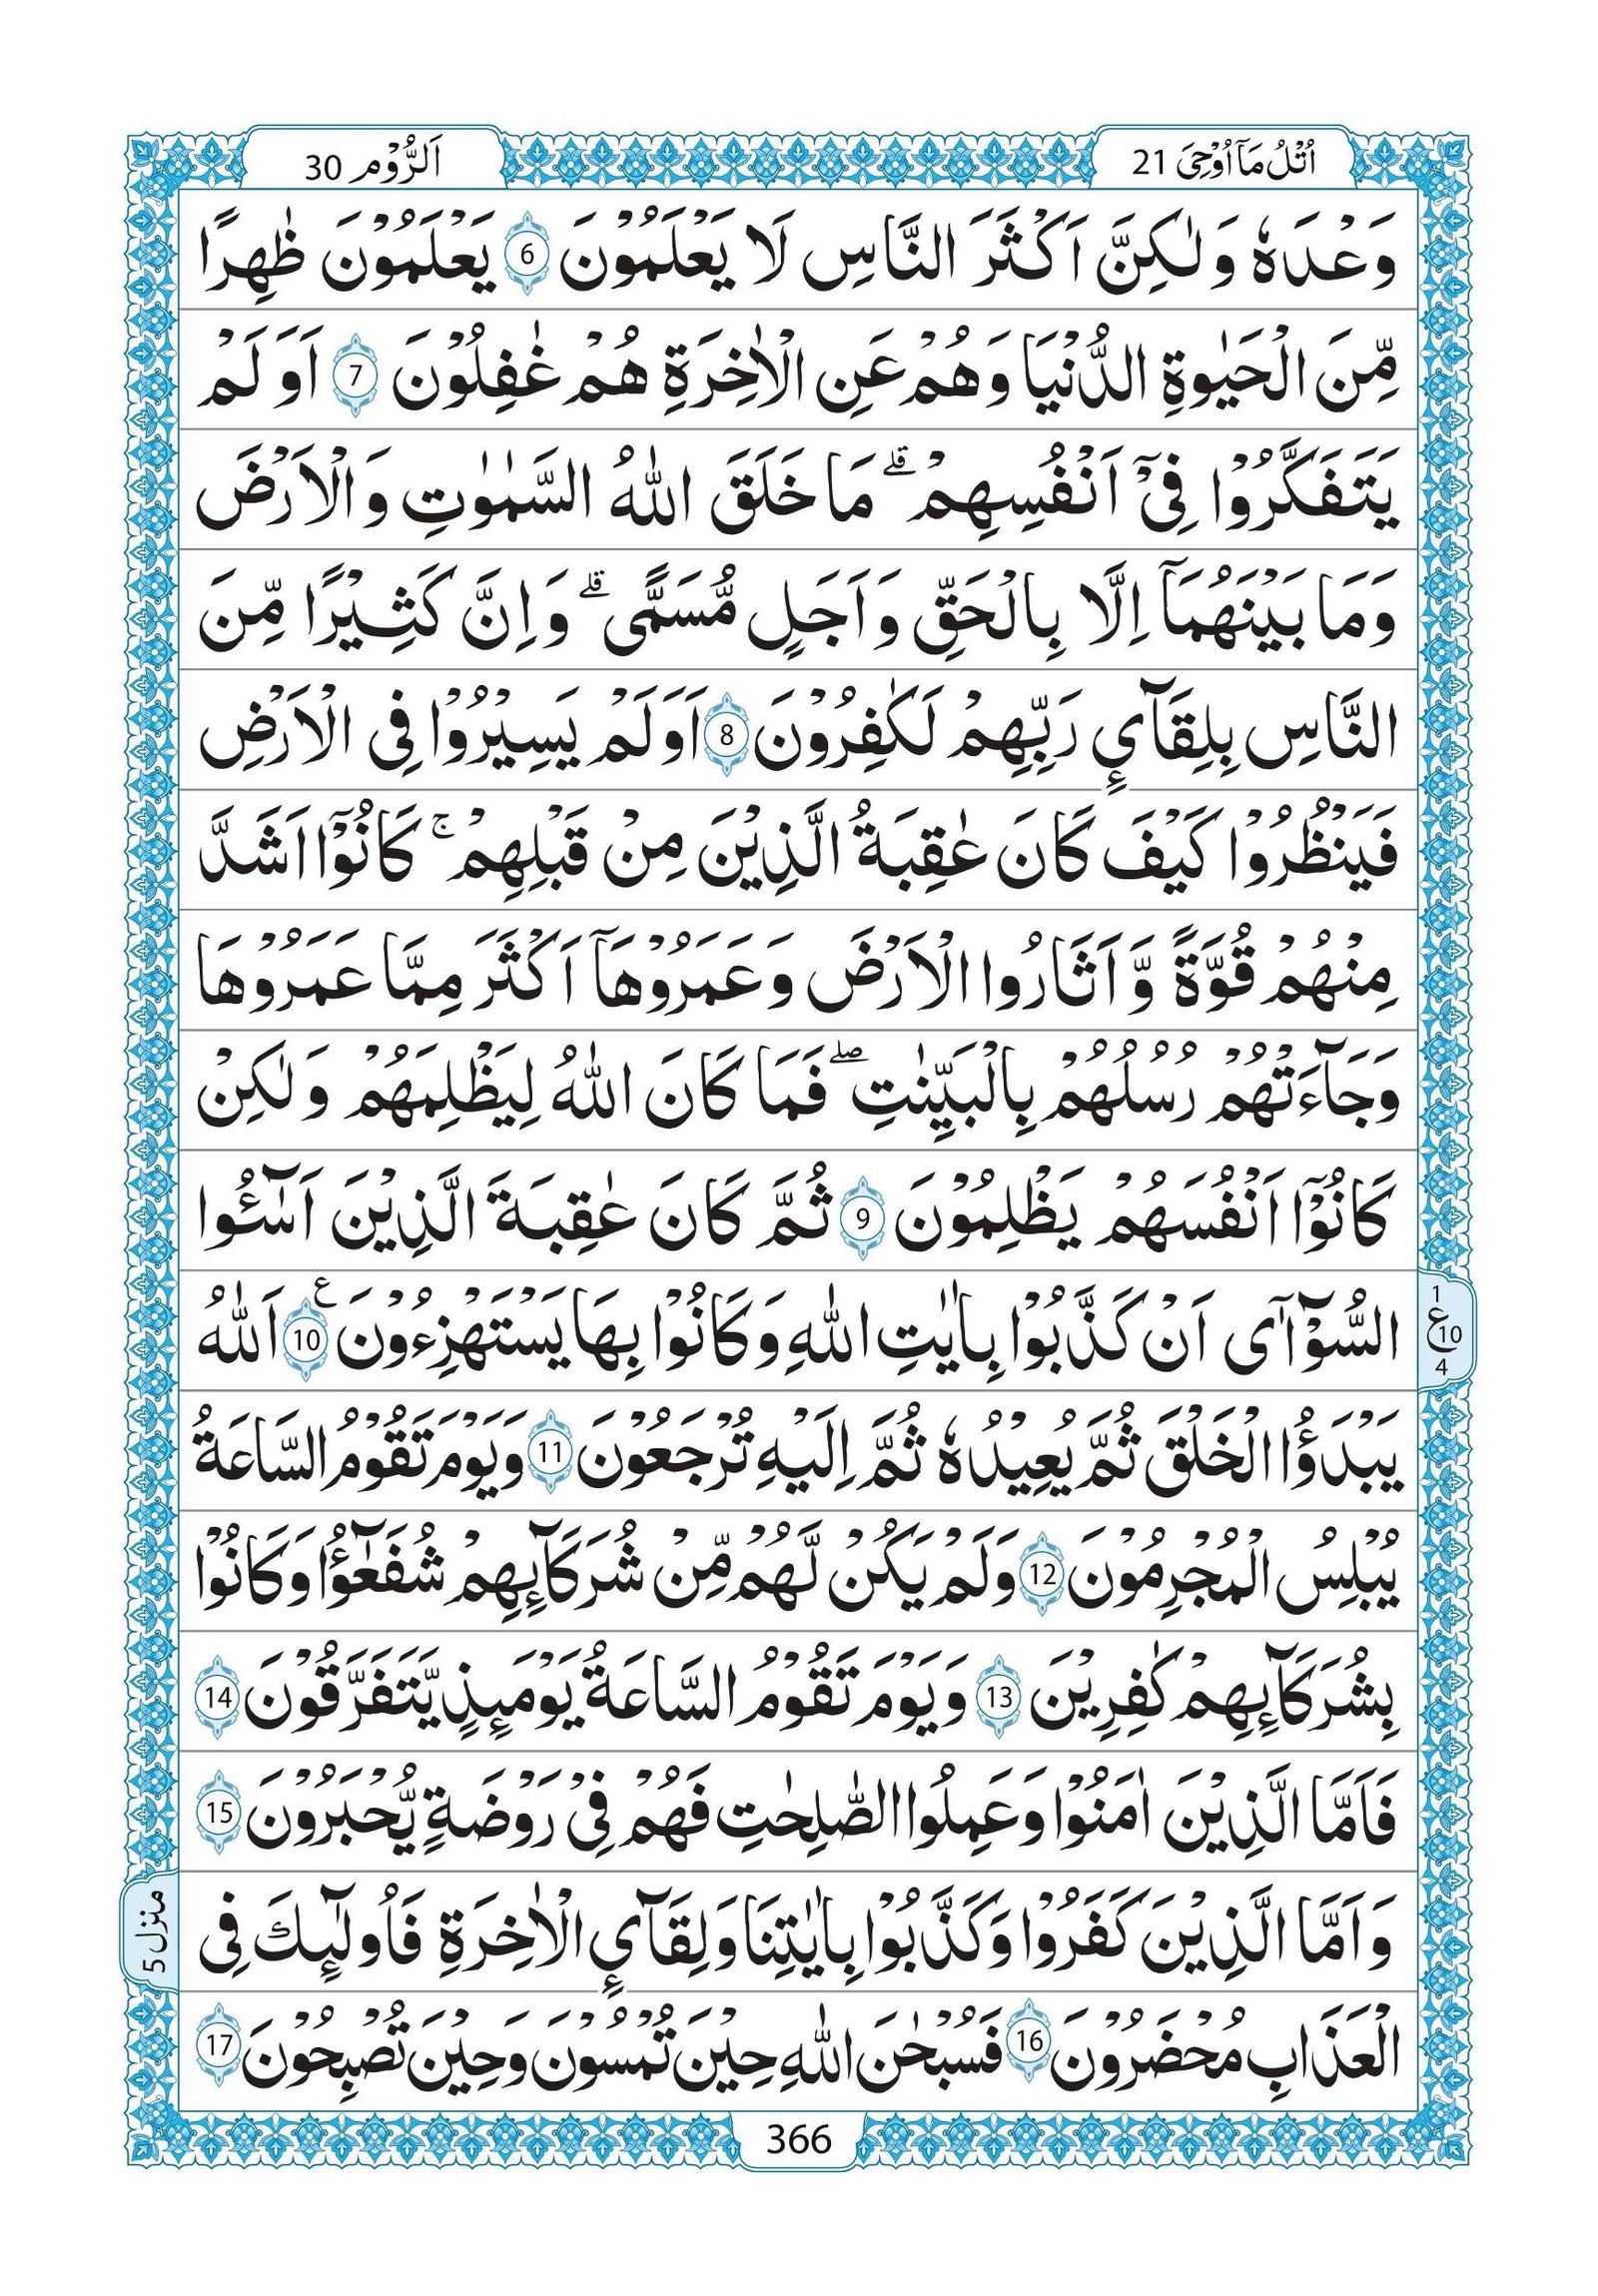 اُتْلُ مَاۤ اُوْحِیَ 21
اَلرُّوْم 30
وَعْدَهٗ وَلٰكِنَّ اَكْثَرَ النَّاسِ لَا یَعْلَمُوْنَ 6 یَعْلَمُوْنَ ظٰهِرًا
مِّنَ الْحَیٰوةِ الدُّنْیَا وَهُمْ عَنِ الْاٰخِرَةِ هُمْ غٰفِلُوْنَ 7 اَوَلَمْ
یَتَفَكَّرُوْا فِیْۤ اَنْفُسِهِمْ ۫ مَا خَلَقَ اللّٰهُ السَّمٰوٰتِ وَالْاَرْضَ
وَمَا بَیْنَهُمَاۤ اِلَّا بِالْحَقِّ وَاَجَلٍ مُّسَمًّی ۫ وَاِنَّ كَثِیْرًا مِّنَ
النَّاسِ بِلِقَآئِ رَبِّهِمْ لَكٰفِرُوْنَ 8 اَوَلَمْ یَسِیْرُوْا فِی الْاَرْضِ
فَیَنْظُرُوْا كَیْفَ كَانَ عٰقِبَةُ الَّذِیْنَ مِنْ قَبْلِهِمْ ۚ كَانُوْۤا اَشَدَّ
مِنْهُمْ قُوَّةً وَّاَثَارُوا الْاَرْضَ وَعَمَرُوْهَاۤ اَكْثَرَ مِمَّا عَمَرُوْهَا
وَجَآءَتْهُمْ رُسُلُهُمْ بِالْبَیِّنٰتِ ۖ فَمَا كَانَ اللّٰهُ لِیَظْلِمَهُمْ وَلٰكِنْ
كَانُوْۤا اَنْفُسَهُمْ یَظْلِمُوْنَ 9 ثُمَّ كَانَ عٰقِبَةَ الَّذِیْنَ اَسَآـُٔوا
السُّوْٓاٰۤی اَنْ كَذَّبُوْا بِاٰیٰتِ اللّٰهِ وَكَانُوْا بِهَا یَسْتَهْزِءُوْنَ ع 10 اَللّٰهُ
1 ع 10 4
یَبْدَؤُا الْخَلْقَ ثُمَّ یُعِیْدُهٗ ثُمَّ اِلَیْهِ تُرْجَعُوْنَ 11 وَیَوْمَ تَقُوْمُ السَّاعَةُ
یُبْلِسُ الْمُجْرِمُوْنَ 12 وَلَمْ یَكُنْ لَّهُمْ مِّنْ شُرَكَآئِهِمْ شُفَعٰٓؤُا وَكَانُوْا
بِشُرَكَآئِهِمْ كٰفِرِیْنَ 13 وَیَوْمَ تَقُوْمُ السَّاعَةُ یَوْمَئِذٍ یَّتَفَرَّقُوْنَ 14
فَاَمَّا الَّذِیْنَ اٰمَنُوْا وَعَمِلُوا الصّٰلِحٰتِ فَهُمْ فِیْ رَوْضَةٍ یُّحْبَرُوْنَ 15
وَاَمَّا الَّذِیْنَ كَفَرُوْا وَكَذَّبُوْا بِاٰیٰتِنَا وَلِقَآئِ الْاٰخِرَةِ فَاُولٰٓئِكَ فِی
منزل 5
الْعَذَابِ مُحْضَرُوْنَ 16 فَسُبْحٰنَ اللّٰهِ حِیْنَ تُمْسُوْنَ وَحِیْنَ تُصْبِحُوْنَ 17
366